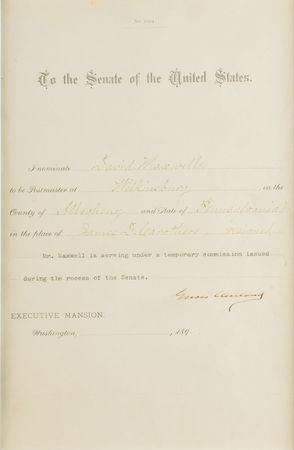 To the Senate of the United States.
I nominate David Maxwell
to be Postmaster at Wilkinsburg, in the
County of Allegheny and State of Pennsylvania
in the place of James D. Carothers, removed.
Mr. Maxwell is serving under a temporary commission issued
during the recess of the Senate.
Grover Cleveland
EXECUTIVE MANSION.
Washington, , 189